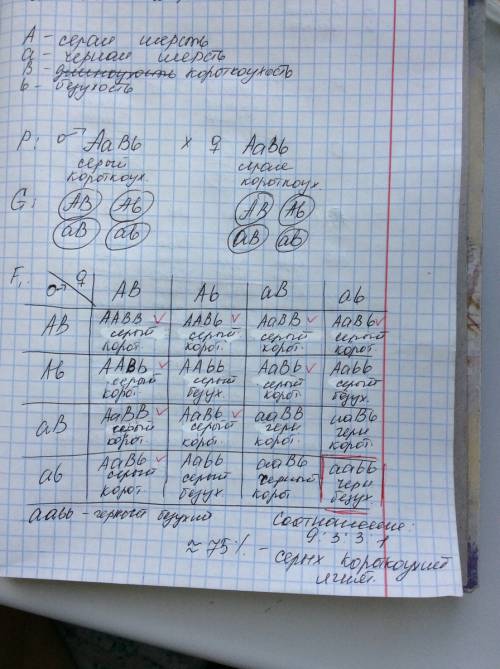 A - серая шерсть
a - черная шерсть
B - короткоухость
b - безухость
P: ♂ AaBb x ♀ AaBb
серый серые
короткоух. короткоух.
G: AB Ab AB Ab
aB ab aB ab
F₁: ♂ ♀ AB Ab aB ab
AB AABB ✓ AABb ✓ AaBB ✓ AaBb ✓
серый серый серый серый
корот. корот. корот. корот
Ab AABb ✓ AAbb AaBb ✓ Aabb
серый серый серый серый
корот. безух. корот. безух.
aB AaBB ✓ AaBb ✓ aaBB aaBb
серый серый черн черн
корот. корот. корот. корот.
ab AaBb ✓ Aabb aaBb aabb
серый серый черный черн
корот. безух. корот безух.
aabb - черный безухий Соотношение:
9:3:3:1
≈ 75% - серых короткоухий
ягнят.